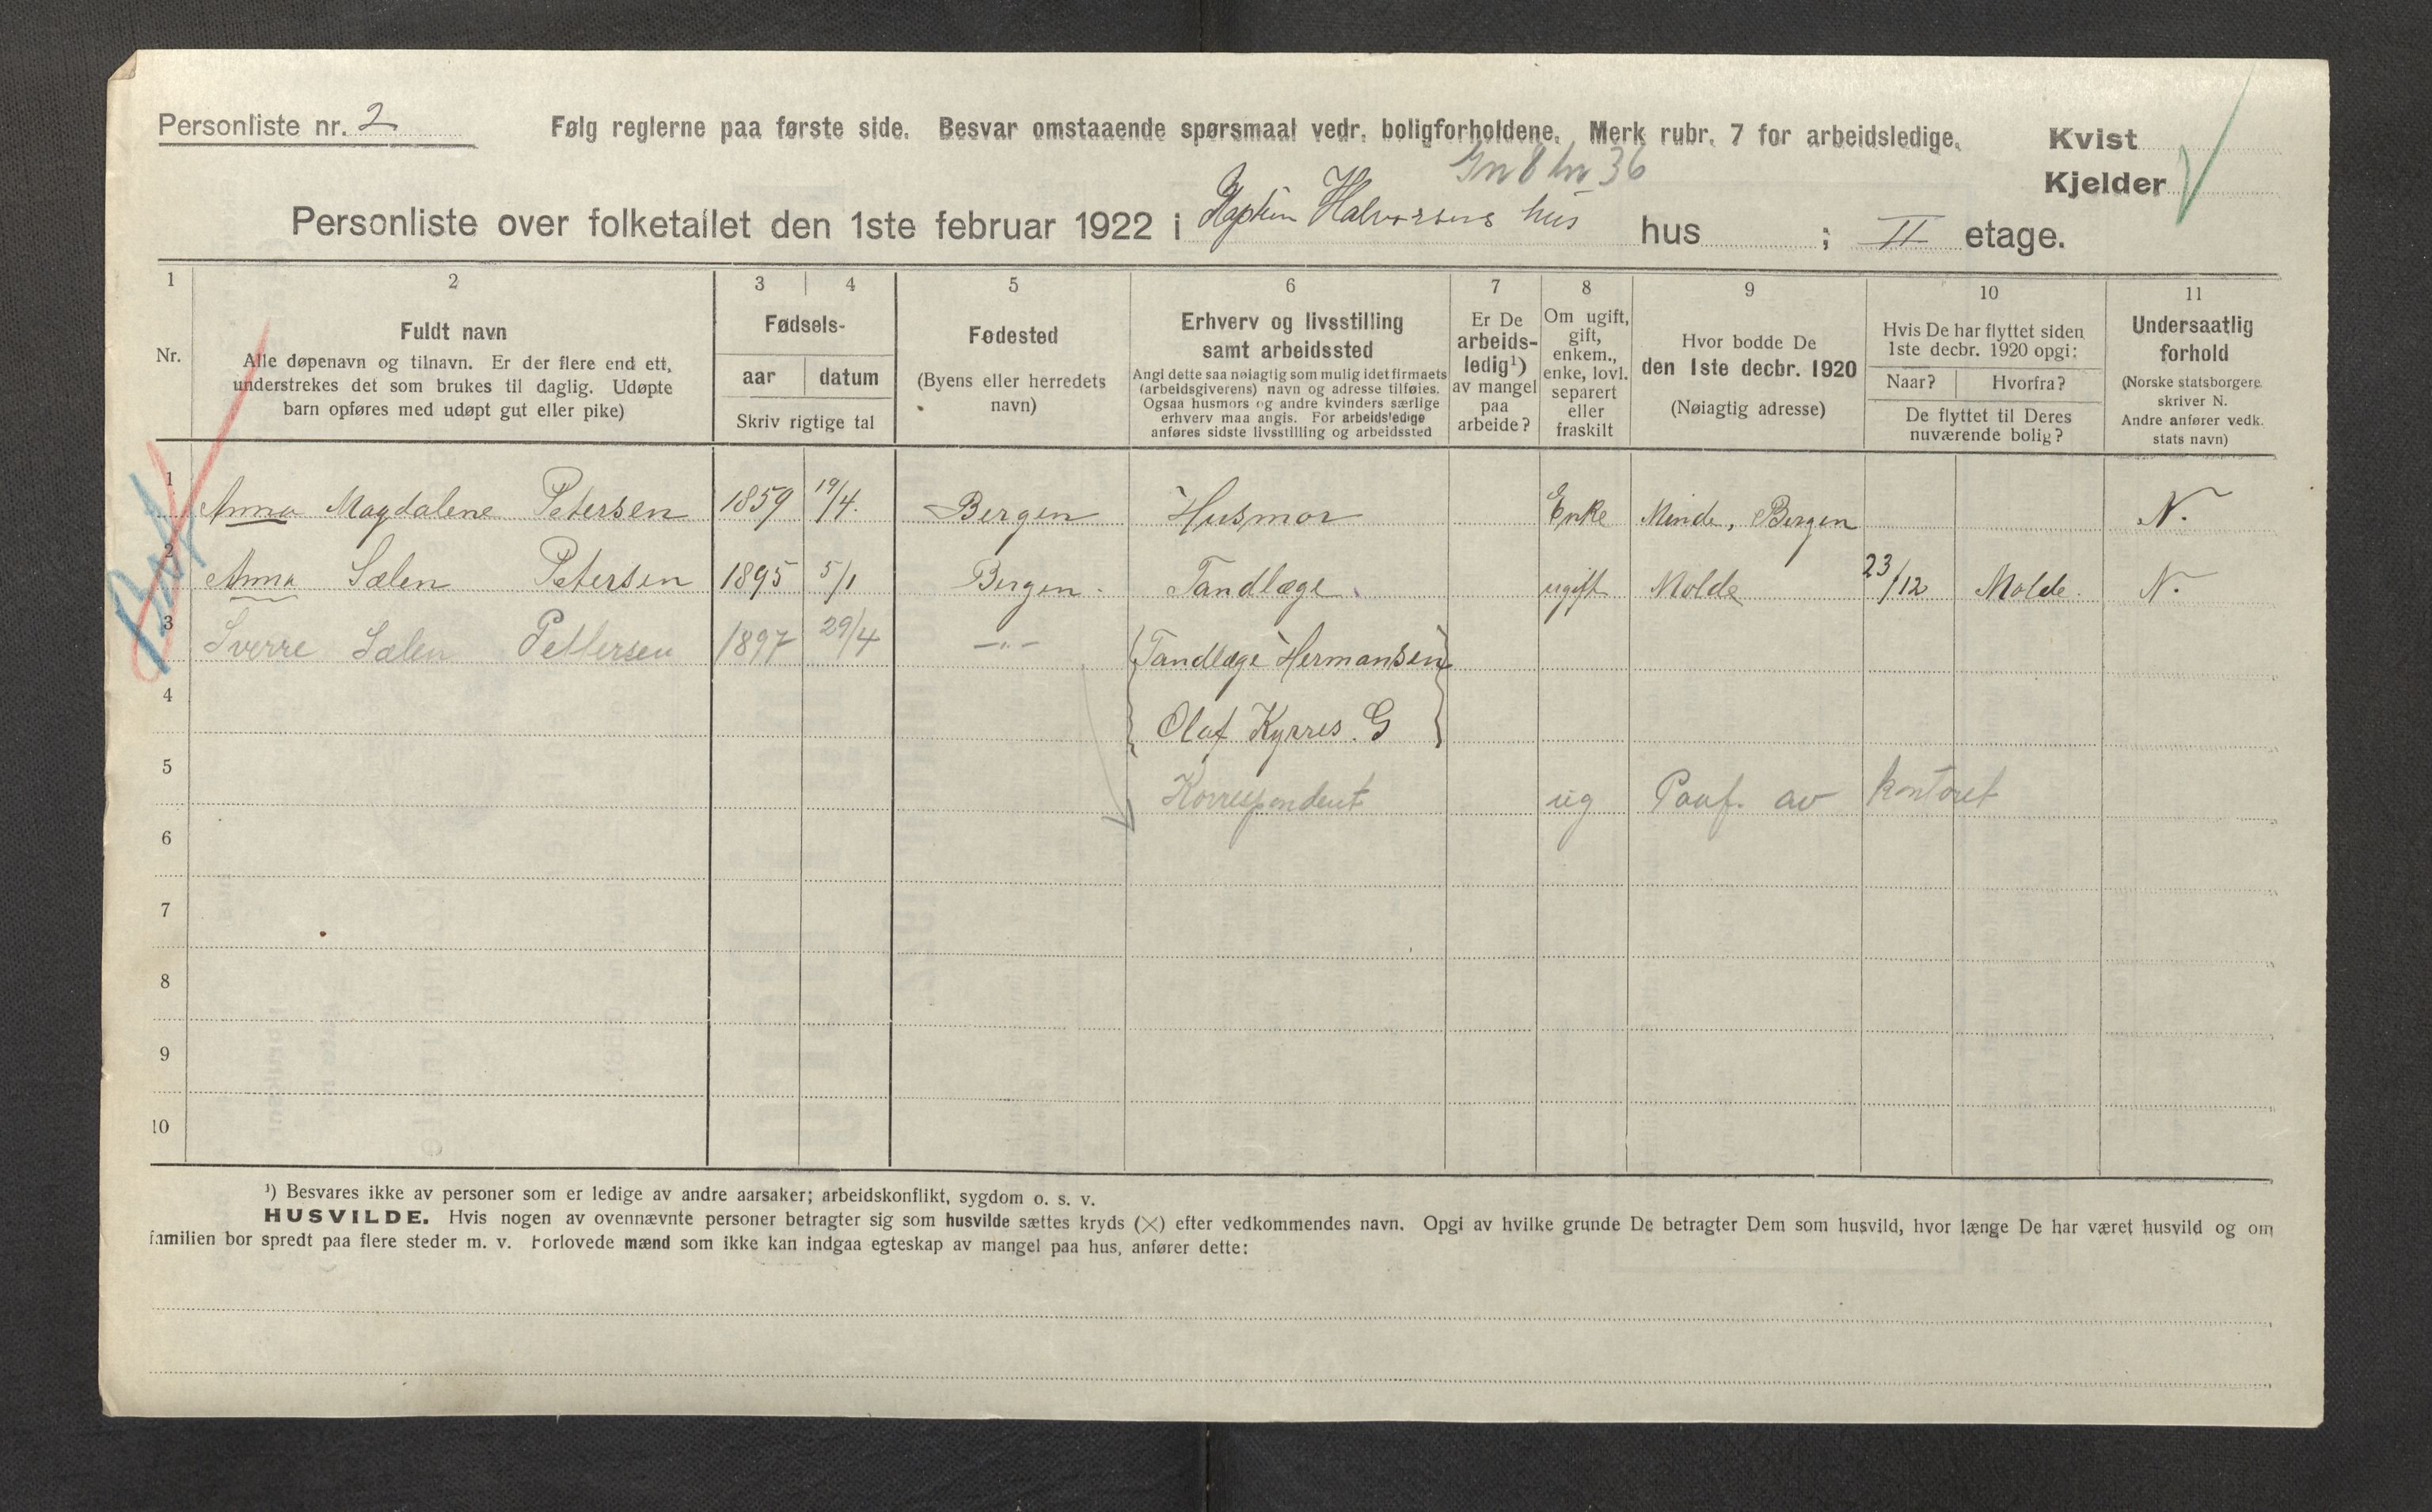 Personliste nr. 2
Følg reglerne paa første side. Besvar omstaaende spørsmaal vedr. boligforholdene. Merk rubr. 7 for arbeidsledige.
Kvist
Kjelder
Gn 8 bn 36
Personliste over folketallet den 1ste februar 1922 i Kaptein Halvorsens hus hus ; II etage.
1 2 3 4 5 6 7 8 9 10 11
Nr.
Fuldt navn
Alle døpenavn og tilnavn. Er der flere end ett,
understrekes det som brukes til daglig. Udøpte
barn opføres med udøpt gut eller pike)
Fødsels-
aar datum
Skriv rigtige tal
Fødested
(Byens eller herredets
navn)
Erhverv og livsstilling
samt arbeidssted
Angi dette saa nøiagtig som mulig idet firmaets
(arbeidsgiverens) navn og adresse tilføies.
Ogsaa husmors og andre kvinders særlige
erhverv maa angis. For arbeidsledige
anføres sidste livsstilling og arbeidssted
Er De
arbeids-
ledig¹)
av mangel
paa
arbeide?
Om ugift,
gift,
enkem.,
enke, lovl.
separert
eller
fraskilt
Hvor bodde De
den 1ste decbr. 1920
(Nøiagtig adresse)
Hvis De har flyttet siden
1ste decbr. 1920 opgi:
Naar? Hvorfra?
De flyttet til Deres
nuværende bolig?
Undersaatlig
forhold
(Norske statsborgere
skriver N.
Andre anfører vedk.
stats navn)
1 Anna Magdalene Petersen 1859 19/4. Bergen Husmor Enke Minde, Bergen N.
2 Anna Sælen Petersen 1895 5/1 Bergen. Tandlæge. ugift Molde 23/12 Molde. N.
3 Sverre Sælen Pettersen 1897 29/4 -"- {Tandlæge Hermansen}
4 { Olaf Kyrres. G }
5 Korrespondent ug Paaf. av kontoret
6
7
8
9
10
¹) Besvares ikke av personer som er ledige av andre aarsaker; arbeidskonflikt, sygdom o. s. v.
HUSVILDE. Hvis nogen av ovennævnte personer betragter sig som husvilde sættes kryds (×) efter vedkommendes navn. Opgi av hvilke grunde De betragter Dem som husvild, hvor længe De har været husvild og om
familien bor spredt paa flere steder m. v. Forlovede mænd som ikke kan indgaa egteskap av mangel paa hus, anfører dette: